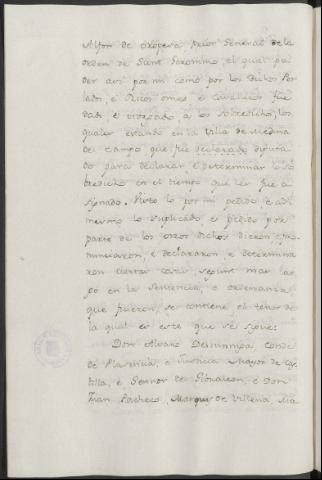 Alfon de oropesa Prior General de la
orden de Sant Geronimo, el qual po
der asi por mi como por los dichos Per
lados, e Ricos omes e cavalleros fue
dado, e otorgado, a los sobredichos, los
quales estando en la Villa de Medina
del campo que fue declarado diputa
do para declarar e determinar lo so
bredicho en el tiempo que les fue a
signado. Visto lo por mi pedido, e adi
mesmo lo suplicado e pedido por
parte de los otros dichos dieron, e pro
nunciaron, e declararon, e determina
ron ciertas cosas segunt mas lar
go en la Sentencia, e ordenanza
que fueron, se contiene el tenor de
la qual es este que se sigue:
Don Alvaro Destuniga, conde
de Plasencia, e Justicia Mayor de Cas
tilla, e Sennor de Gibraleon, e Don
Juan Pacheco, Marques de Villena, Ma